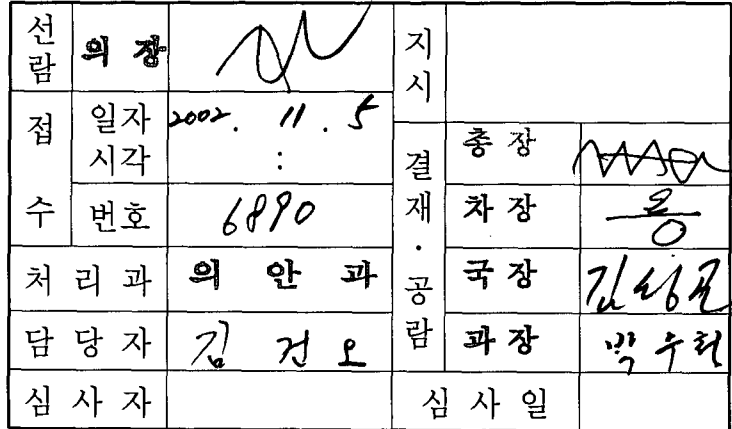 선람 의장 지시
접수 일자 2002. 11. 5
시각 :
결재·공람 총장
번호 6890 차장
처리과 의안과 국장
담당자 김건오 과장
심사자 심사일